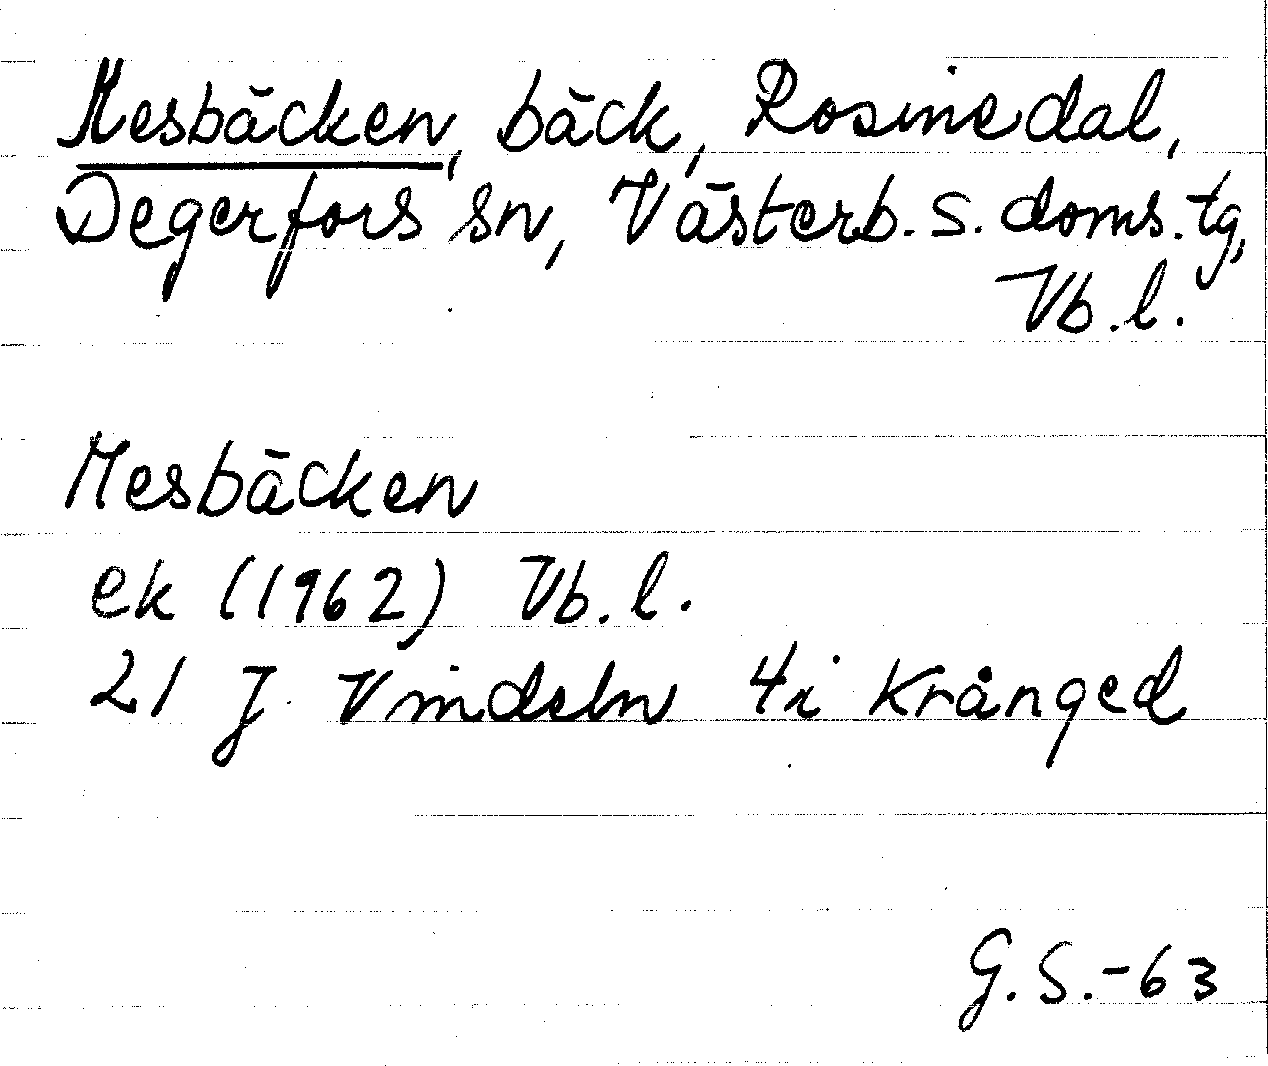 Mesbäcken, bäck, Rosinedal,
Degerfors sn, Västerb. s. doms. tg,
Vb. l.
Mesbäcken
ek (1962) Vb. l.
21 J Vindeln 4i Krånged
G. S. -63